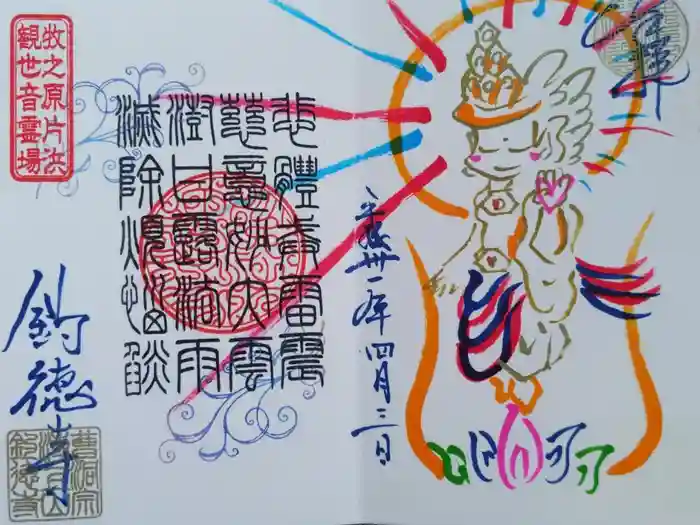 牧之原片浜
観世音霊場
悲體戒雷震
慈意妙大雲
澍甘露法雨
滅除煩惱燄
平成卅一年四月三日
釣徳寺
曹洞宗
釣徳寺